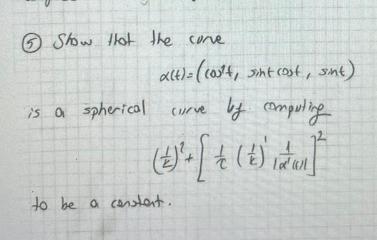 ⑤ Show that the curve
α(t) = (cos²t, sint cost, sint)
is a spherical curve by computing
(1/k)² + [1/τ (1/k)' 1/|α'(t)|]²
to be a constant.